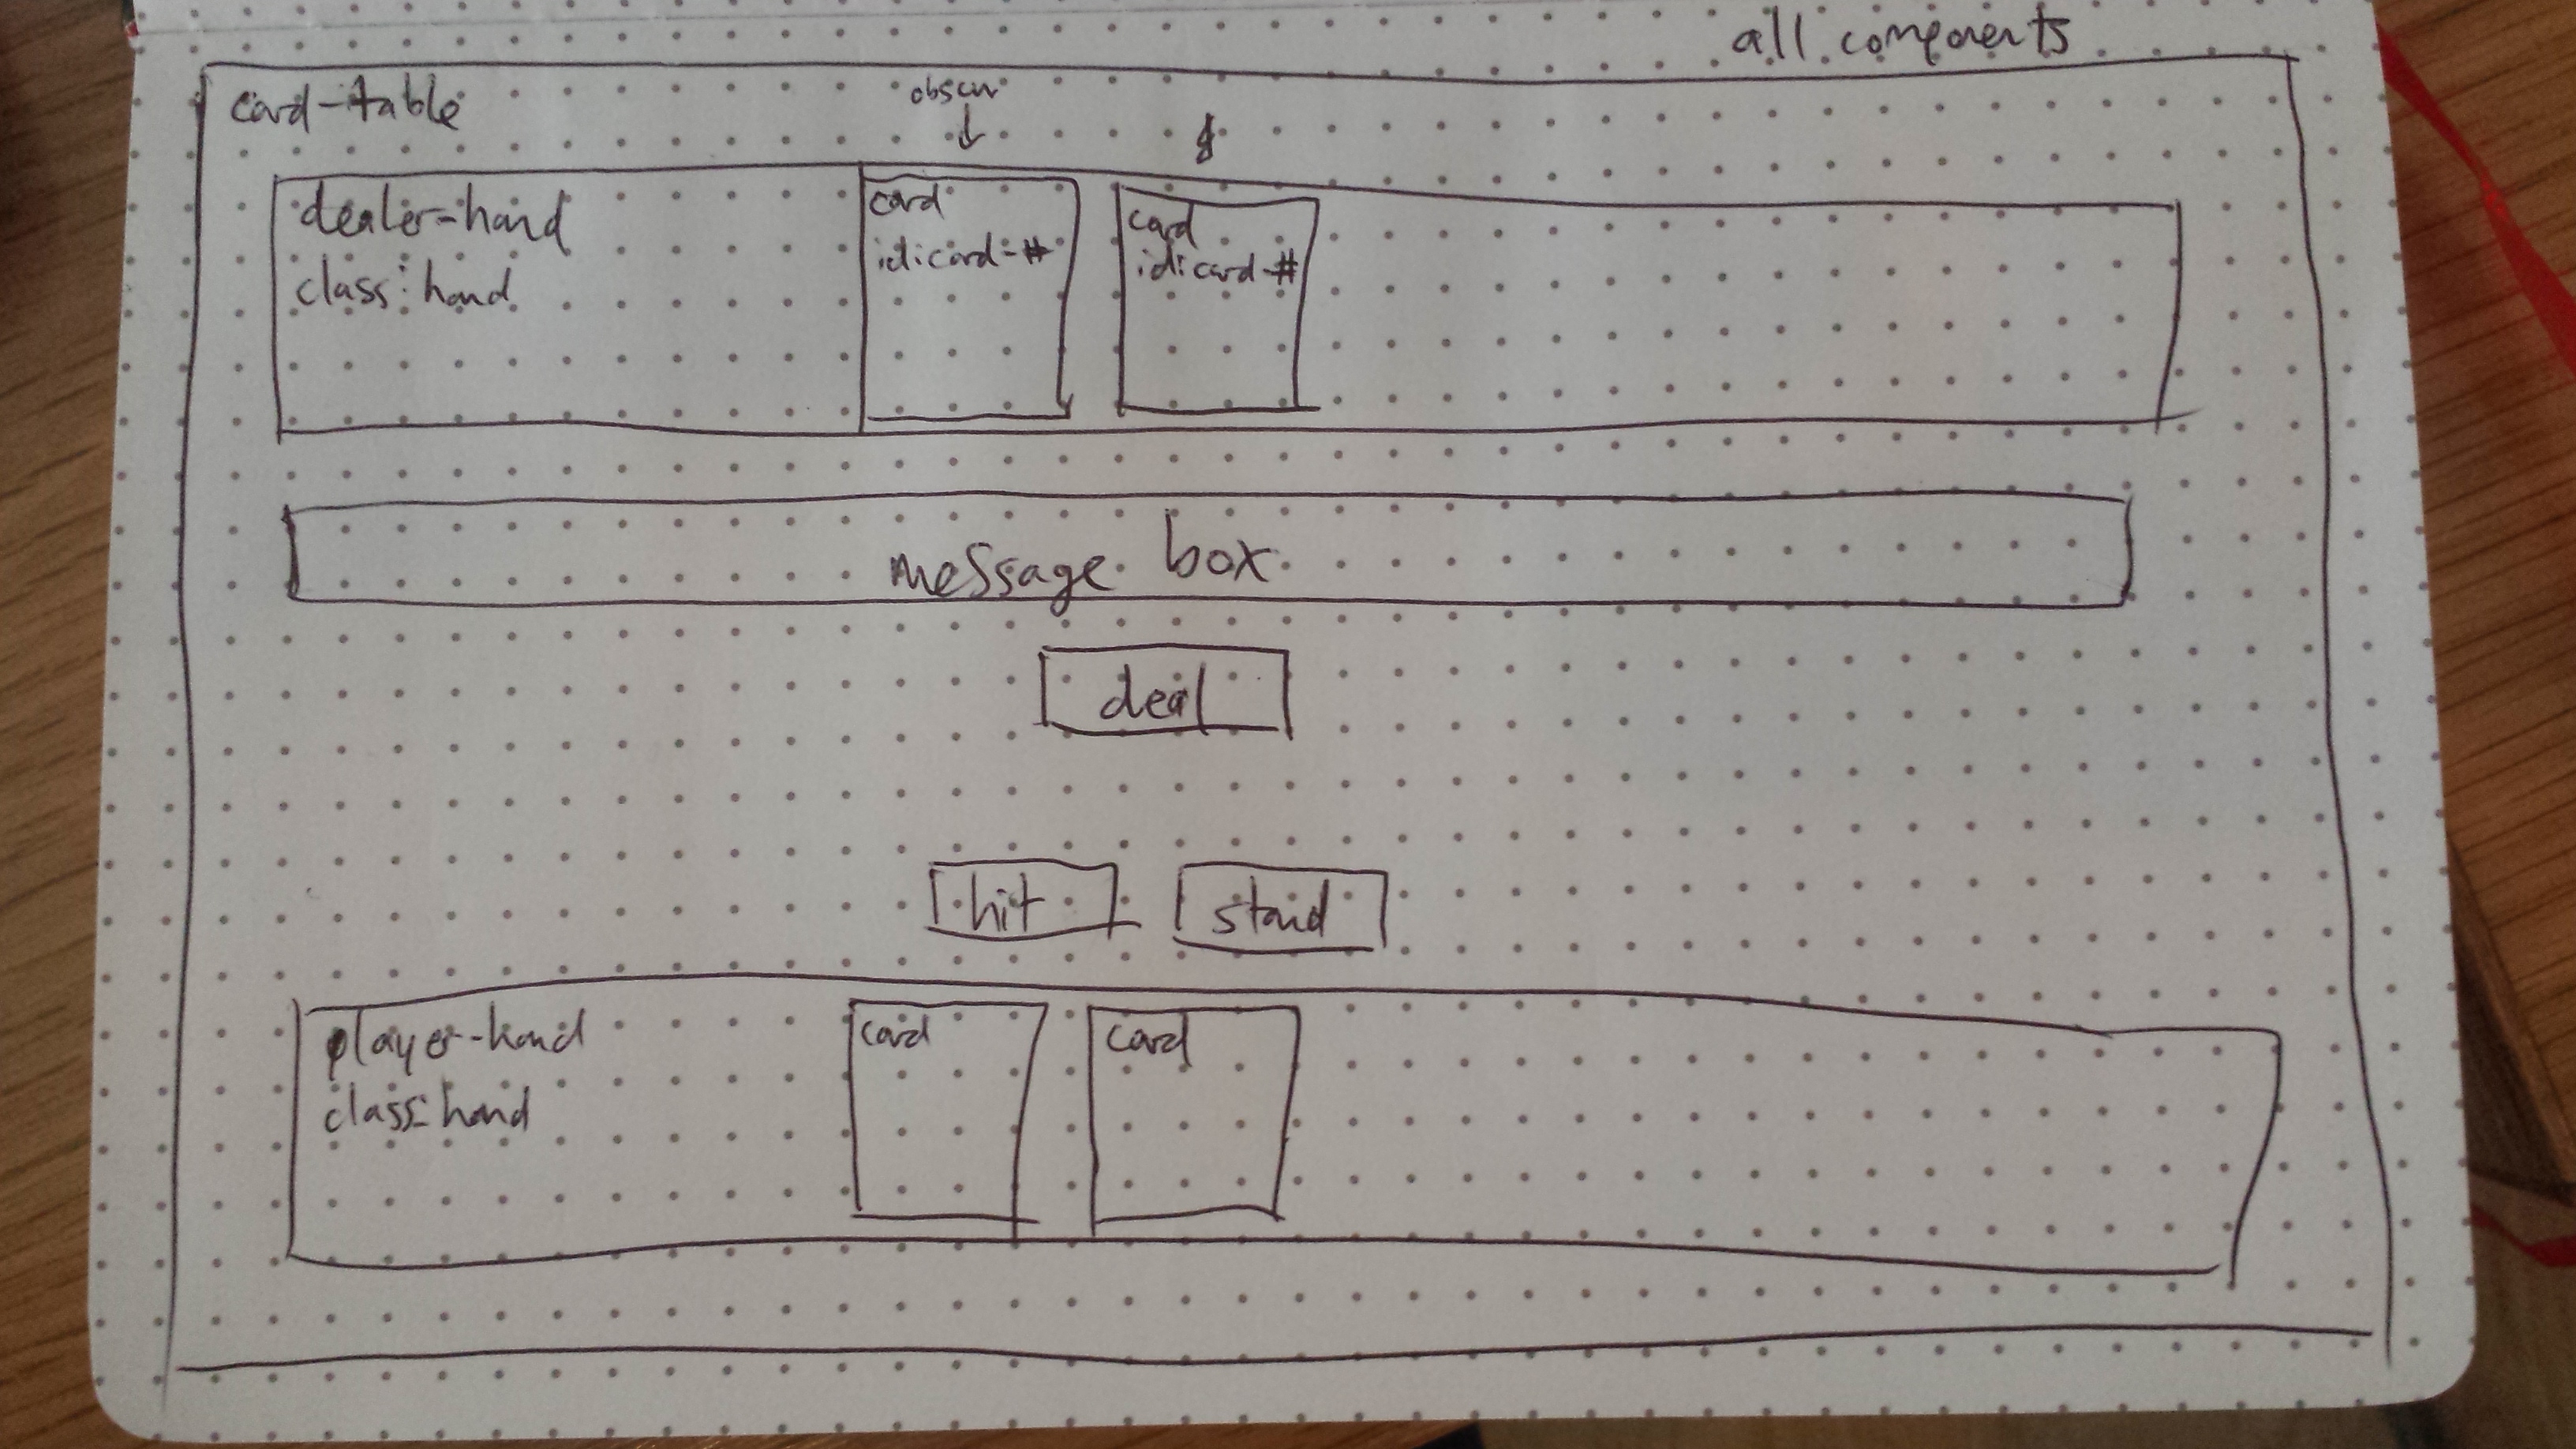 all components
card-table
obscur
dealer-hand
class: hand
card
id: card-#
card
id: card-#
message box
deal
hit
stand
player-hand
class: hand
card
card